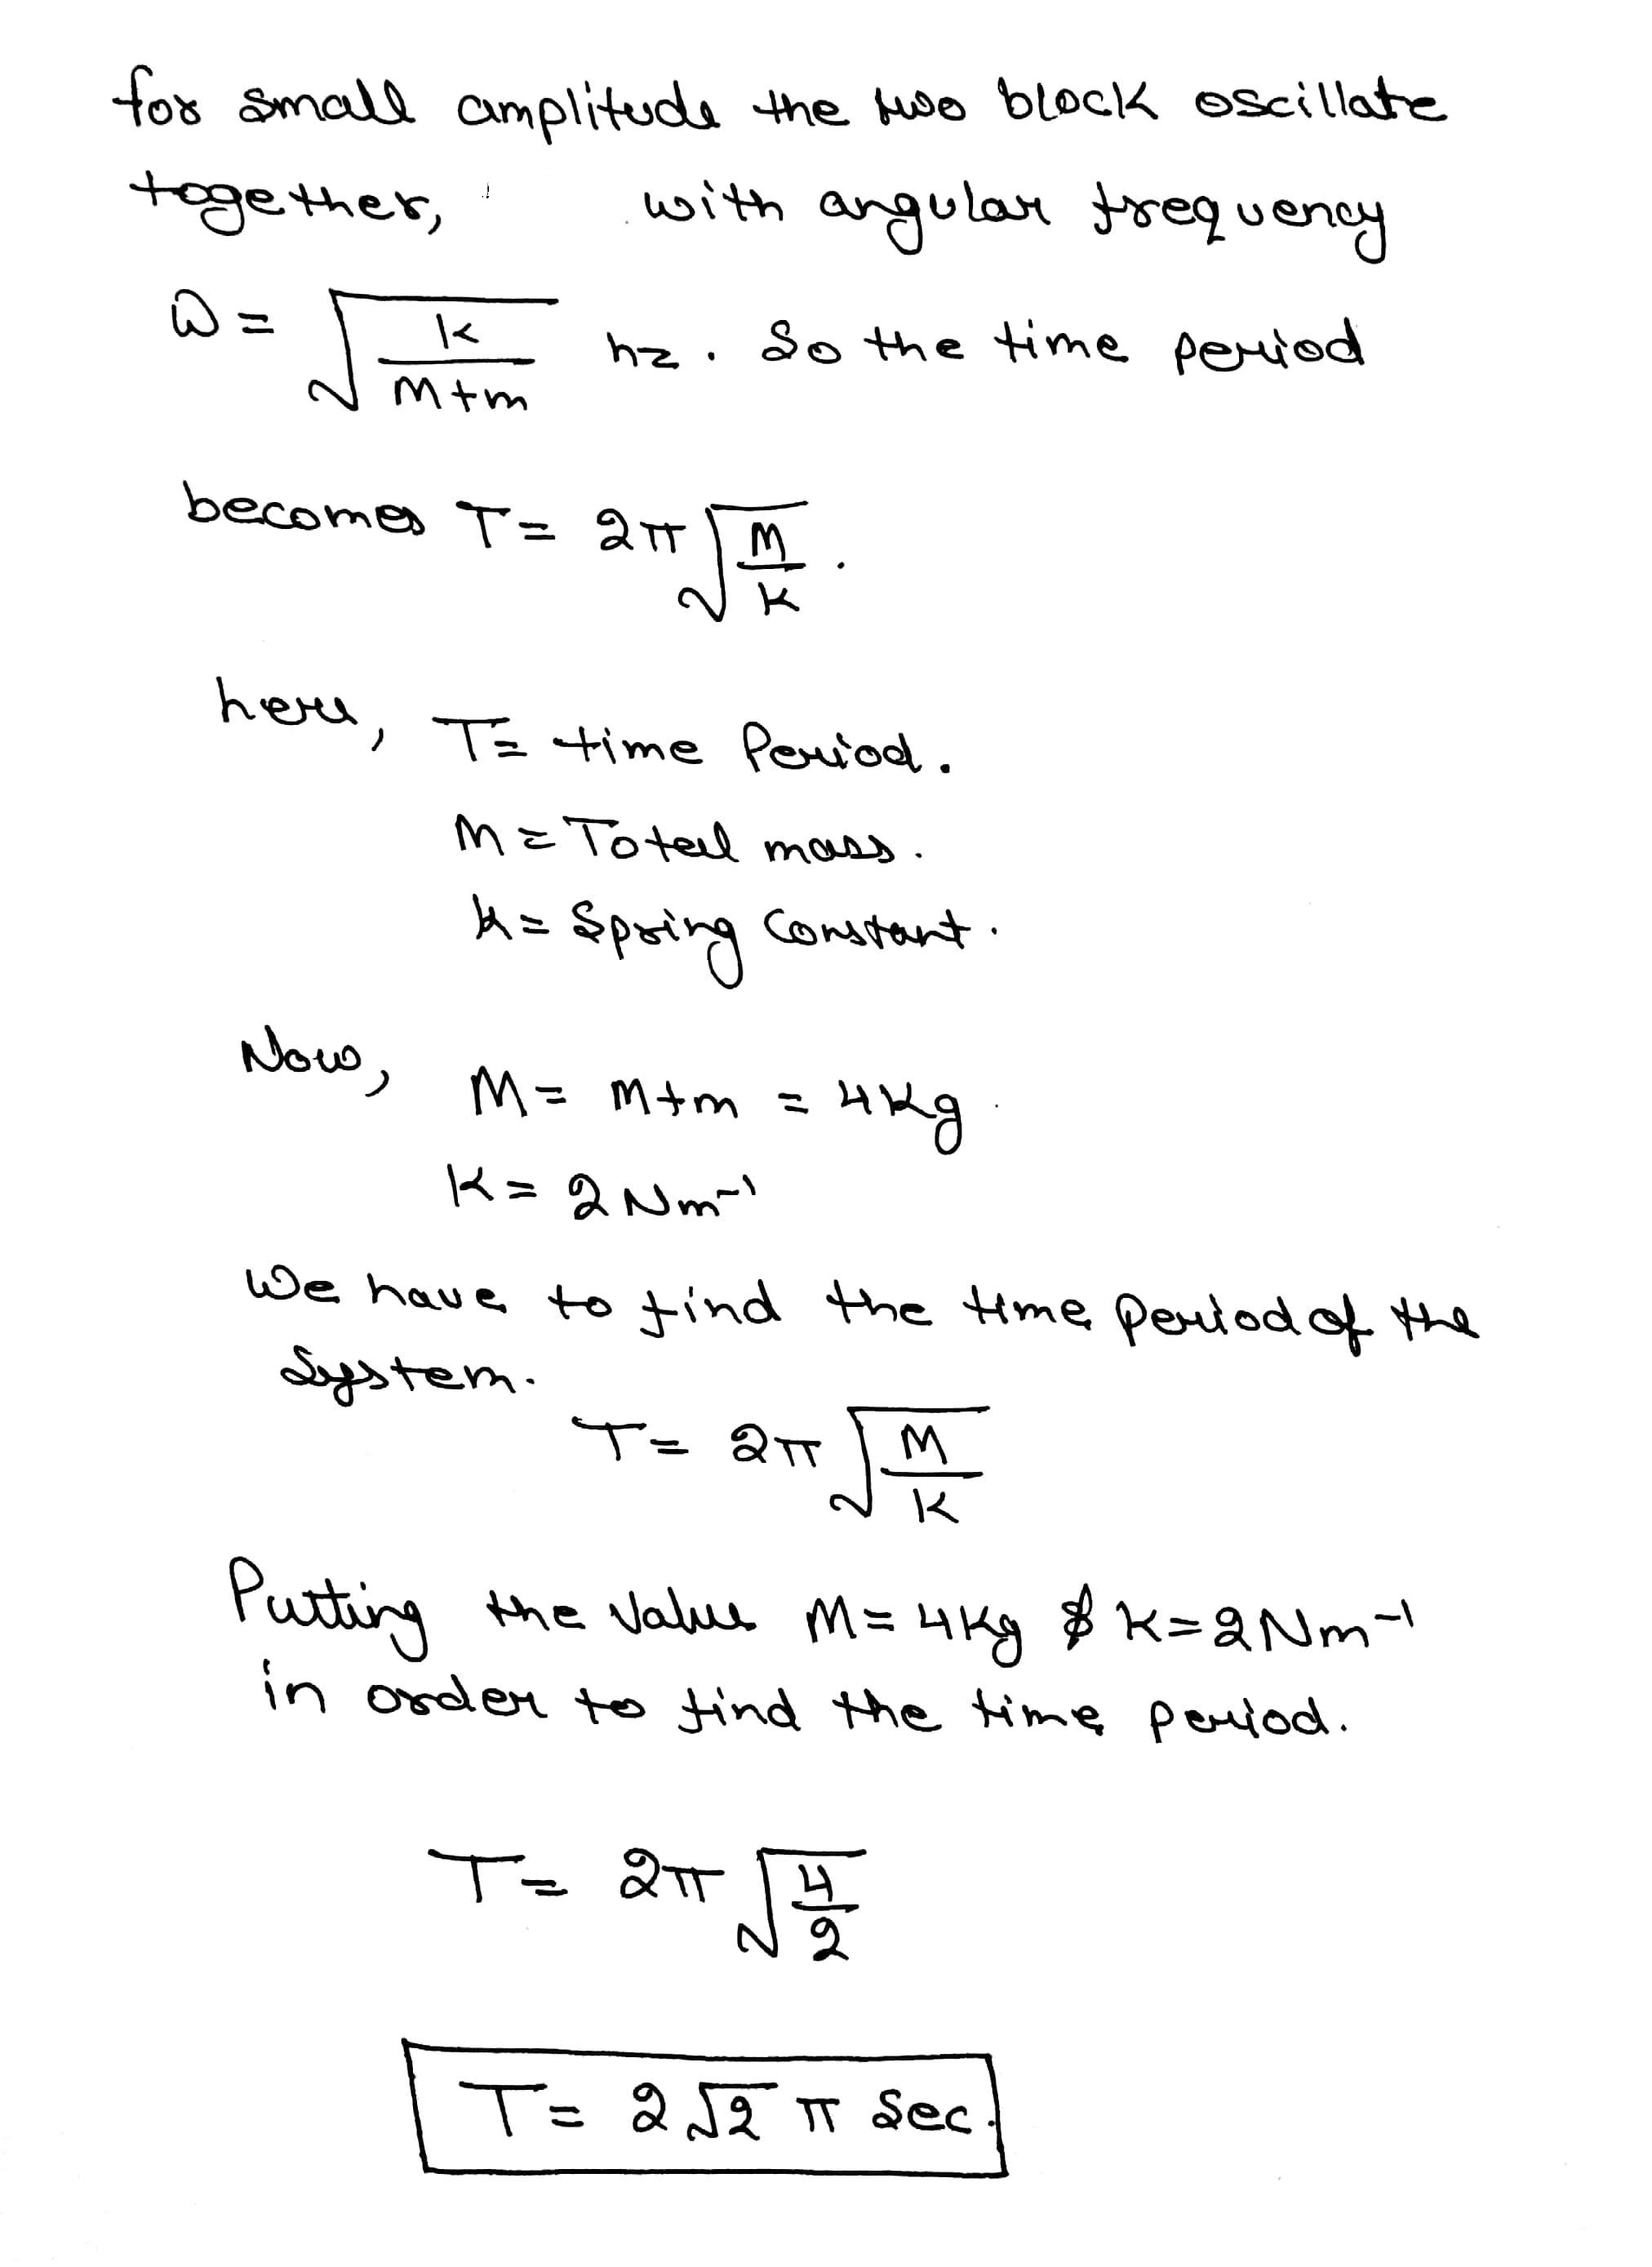 for small amplitude the two block oscillate
together, with angular frequency
ω = √(k/(M+m)) hz. So the time period
becomes T = 2π √(M/K).
here, T = time Period.
M = Total mass.
k = Spring Constant.
Now, M = M+m = 4Kg
K = 2 Nm⁻¹
We have to find the time Period of the
System.
T = 2π √(M/K)
Putting the Value M = 4Kg & K = 2Nm⁻¹
in order to find the time period.
T = 2π √(4/2)
T = 2√2 π Sec.